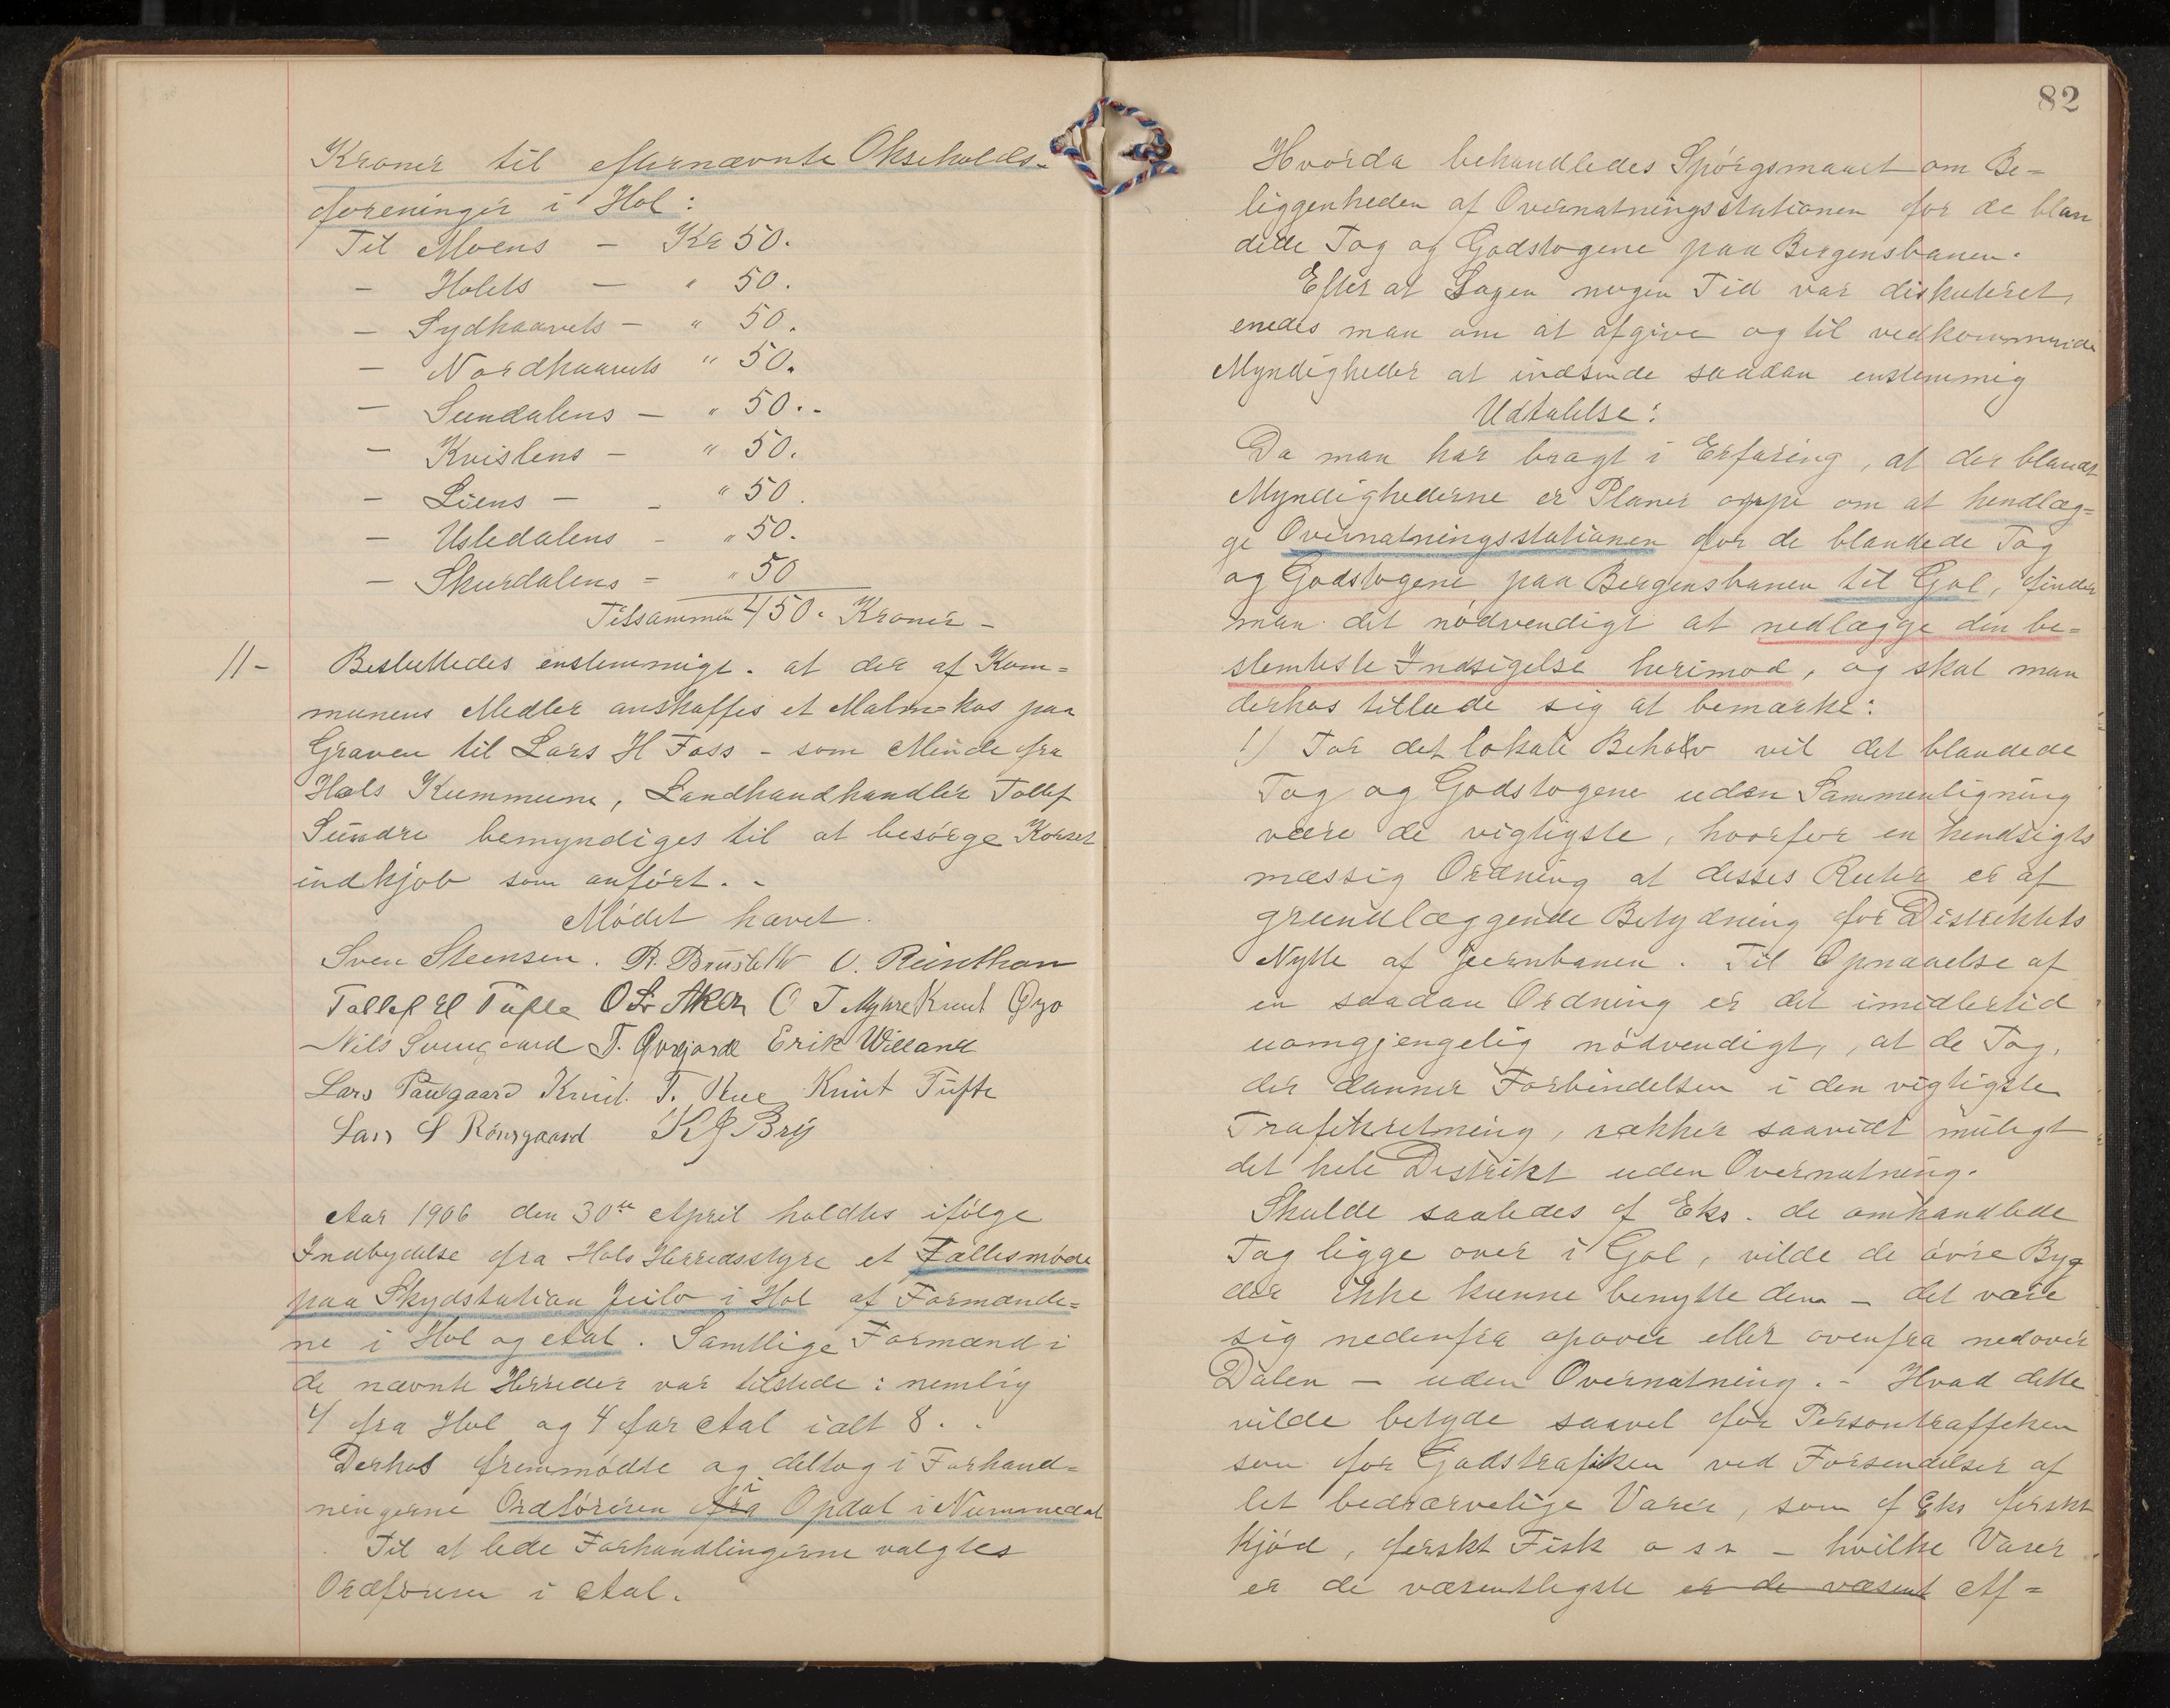 Kroner til efternævnte Okseholds-
foreninger i Hol:
Til Moens - Kr 50.
- Holets - " 50.
- Sydhaavets - " 50.
- Nordhaavets " 50.
- Sundalens - " 50.-
- Kvislens - " 50.
- Liens - - " 50.
- Ustedalens - " 50.
- Skurdalens - " 50
Tilsammen 450. Kroner -
11- Besluttedes enstemmigt. at der af Kom=
munens Medler anskaffes et Malm-kos paa
Graven til Lars H Foss - som Minde fra
Hols Kummune, Landhandhandler Tollef
Sundre bemyndiges til at besørge Korset
indkjøb som anført. -
Mødet hævet.
Sven Steensen. O. Reinthon
Tollef El Tufte O Myhre Knut
Nils Svengaard T. Erik Willand
Lars Paulgaard Knud. T. Rue Knut Tufte
Lars S Rønsgaard
Aar 1906 den 30te April holdtes ifølge
Indbydelse fra Hols Herredsstyre et Fællesmøde
paa Skydstation Jeilo i Hol af Formænde=
ne i Hol og Aal. Samtlige Formænd i
de nævnte Herreder var tilstede: nemlig
4 fra Hol og 4 far Aal ialt 8. -
Derhos fremmødte og deltog i Forhand=
ningerne Ordføreren fra i Opdal i Nummedal
Til at lede Forhandlingerne valgtes
Ordføreren i Aal.
82
Hvorda behandledes Spørgsmaaet om Be=
liggenheden af Overnatningsstationen for de blan
dede Tog og Godstogene paa Bergensbanen.
Efter at Sagen nogen Tid var diskuteret,
enedes man om at afgive og til vedkommende
Myndigheder at indsende saadan enstemmig
Udtalelse:
Da man har bragt i Erfaring, at der blandt
Myndighederne er Planer oppe om at hendlæg=
ge Overnatningsstationen for de blandede Tog
og Godstogene paa Bergensbanen til Gol, finder
man det nødvendigt at nedlægge den be=
stemteste Indsigelse herimod, og skal man
derhos tillade sig at bemærke:
1) For det lokale Behov vil det blandede
Tog og Godstogene uden Sammenligning
være de vigtigste, hvorfor en hendsigts
mæssig Ordning at disses Ruter er af
grundlæggende Betydning for Distriktets
Nytte af Jernbanen. Til Opnaaelse af
en saadan Ordning er det imidlertid
uomgjengelig nødvendigt, at de Tog,
der danner Forbindelsen i den vigtigste
Trafikretning, rækker saavidt muligt
det hele Distrikt uden Overnatning.
Skulde saaledes f Eks. de omhandlede
Tog ligge over i Gol, vilde de øvre Byg
der ikke kunne benytte dem - det være
sig nedenfra opover eller ovenfra nedover
Dalen - uden Overnatning. - Hvad dette
vilde betyde saavel for Persontraffeken
som for Godstrafiken ved Forsendelser af
let bedærvelige Varer, som f Eks ferskt
Kjød, ferskt Fisk o s v - hvilke Varer
er de væsentligste er de væsent Af=